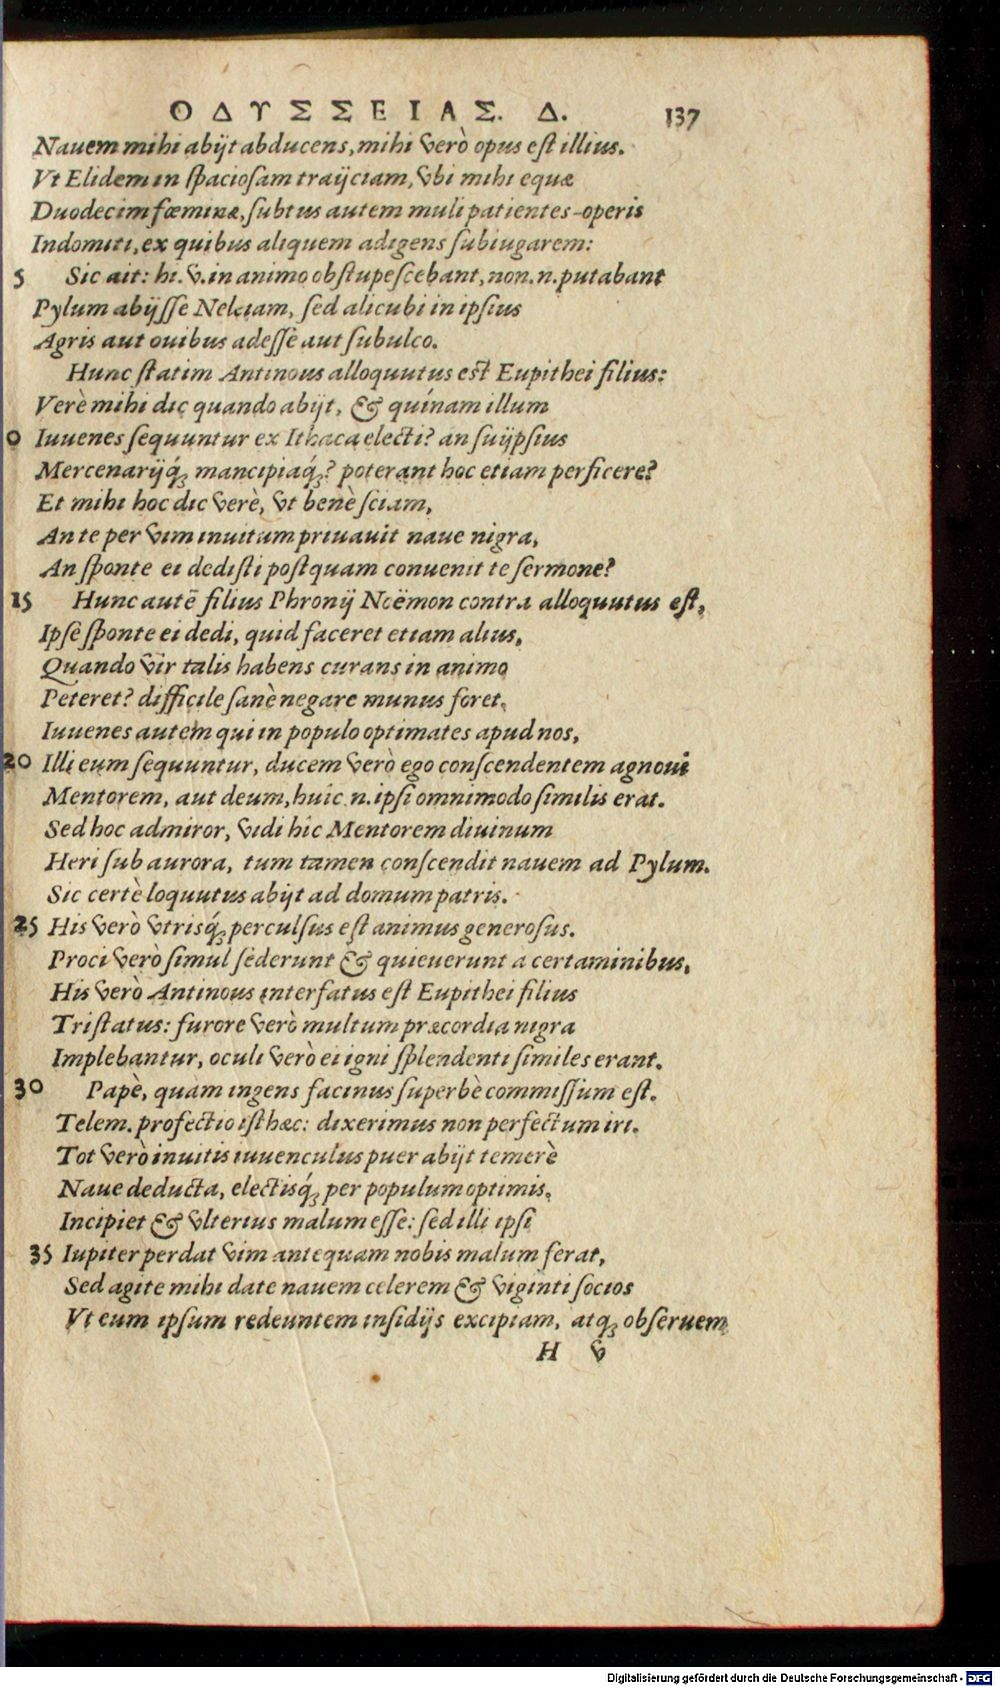 ΟΔΥΣΣΕΙΑΣ. Δ. 137
Nauem mihi abijt abducens, mihi verò opus est illius.
Vt Elidem in spaciosam traijciam, vbi mihi equæ
Duodecim fœminæ, subtus autem muli patientes operis
Indomiti, ex quibus aliquem adigens subiugarem:
5 Sic ait: hi. v. in animo obstupescebant, non. n. putabant
Pylum abijsse Neleiam, sed alicubi in ipsius
Agris aut ouibus adesse aut subulco.
Hunc statim Antinous alloquutus est Eupithei filius:
Verè mihi dic quando abijt, & quínam illum
0 Iuuenes sequuntur ex Ithaca electi? an suijpsius
Mercenarijq́; mancipiaq́;? poterant hoc etiam perficere?
Et mihi hoc dic verè, vt benè sciam,
An te per vim inuitum priuauit naue nigra,
An sponte ei dedisti postquam conuenit te sermone?
15 Hunc autē filius Phronij Noëmon contra alloquutus est,
Ipse sponte ei dedi, quid faceret etiam alius,
Quando vir talis habens curans in animo
Peteret? difficile sanè negare munus foret.
Iuuenes autem qui in populo optimates apud nos,
20 Illi eum sequuntur, ducem verò ego conscendentem agnoui
Mentorem, aut deum, huic. n. ipsi omnimodo similis erat.
Sed hoc admiror, vidi hîc Mentorem diuinum
Heri sub aurora, tum tamen conscendit nauem ad Pylum.
Sic certè loquutus abijt ad domum patris.
25 His verò vtrisq́; perculsus est animus generosus.
Proci verò simul sederunt & quieuerunt à certaminibus,
His verò Antinous interfatus est Eupithei filius
Tristatus: furore verò multum præcordia nigra
Implebantur, oculi verò ei igni splendenti similes erant.
30 Papè, quam ingens facinus superbè commissum est.
Telem. profectio isthæc: dixerimus non perfectum iri.
Tot verò inuitis iuuenculus puer abijt temerè
Naue deducta, electisq́; per populum optimis.
Incipiet & vlterius malum esse: sed illi ipsi
35 Iupiter perdat vim antequam nobis malum ferat,
Sed agite mihi date nauem celerem & viginti socios
Vt eum ipsum redeuntem insidijs excipiam, atq; obseruem
H v
Digitalisierung gefördert durch die Deutsche Forschungsgemeinschaft - DFG